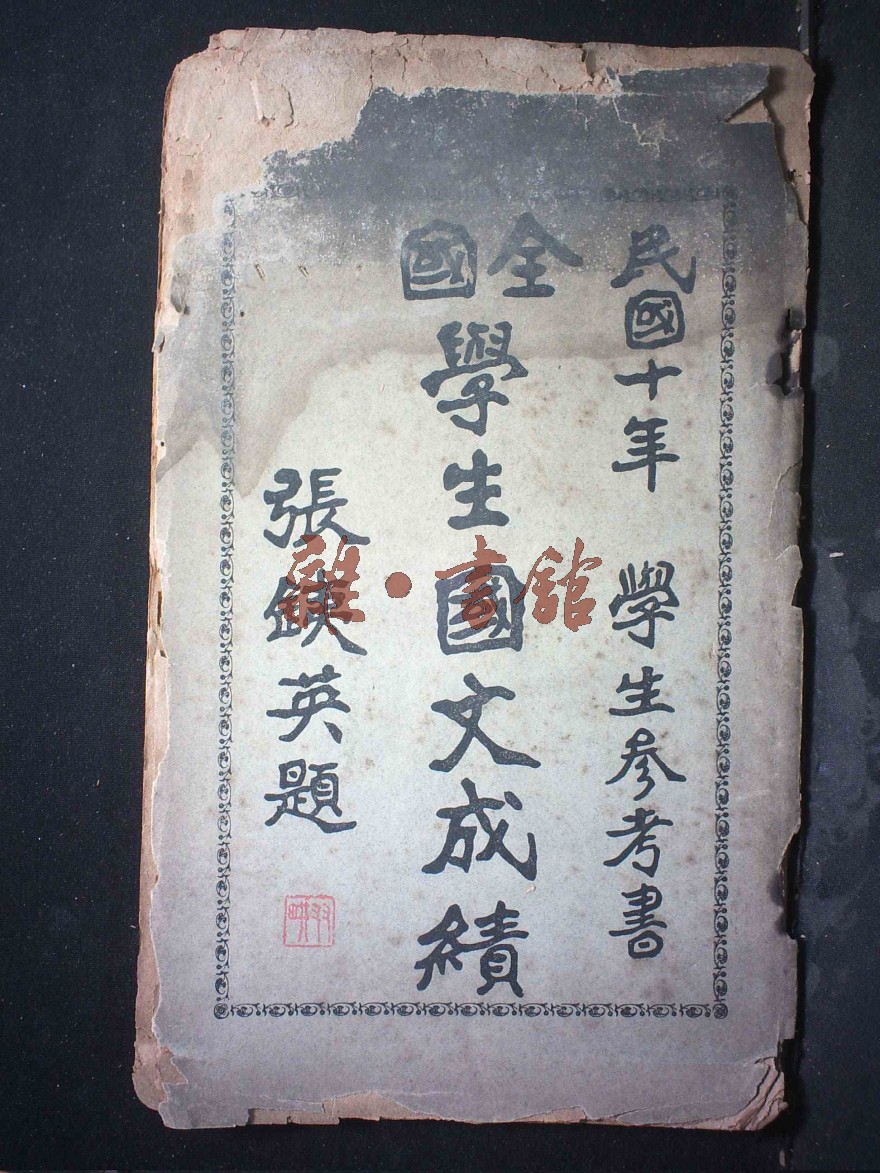 民國十年 學生参考書
全國
學生國文成績
張英題
雜·書館